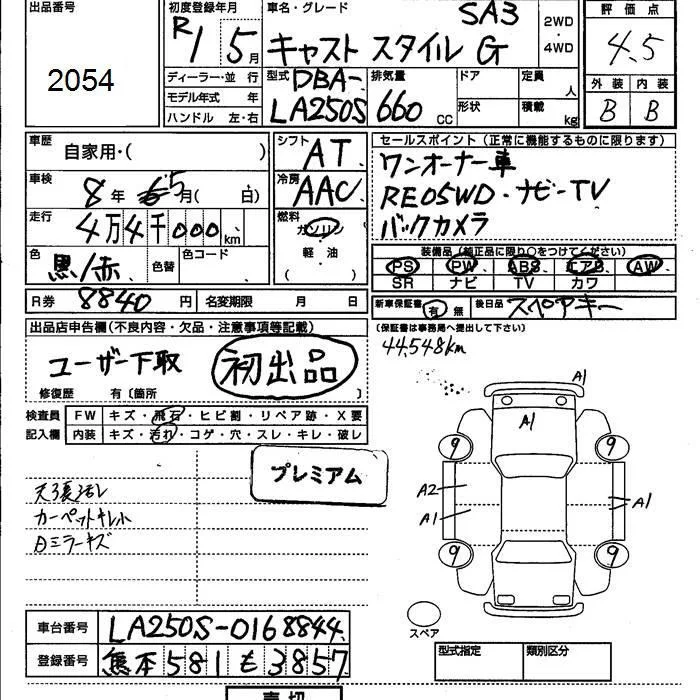 出品番号
2054
初度登録年月
R1 5月
ディーラー・並 行
モデル年式 年
ハンドル 左・右
車名・グレード
SA3
キャスト スタイル G
2WD
・
4WD
型式 DBA-
LA250S
排気量
660 CC
ドア
形状
定員 人
積載 kg
評価点
4.5
外装 内装
B B
車歴
自家用・( )
車検
8年 5月( 日)
走行
4万4千000km
色
黒/赤
色替
色コード
シフト
AT
冷房
AAC
燃料
ガソリン
・
軽・油
( )
R券 8840 円 名変期限 月 日
セールスポイント (正常に機能するものに限ります)
ワンオーナー車
RE05WD・ナビ-TV
バックカメラ
装備品 (純正品に限り○をつけてください)
PS PW ABS エアB AW
SR ナビ TV カワ
新車保証書 有 無 後日品 スペアキー
(保証書は事務局へ提出して下さい)
44,548km
出品店申告欄(不良内容・欠品・注意事項等記載)
ユーザー下取 初出品
修復歴 有〔箇所 〕
検査員
記入欄
FW キズ・飛石・ヒビ割・リペア跡・X要
内装 キズ・汚れ・コゲ・穴・スレ・キレ・破レ
プレミアム
天張汚レ
カーペットキレ小
ミラーキズ
A1
A1
9 9
A2
A1
A1
9 9
スペア
車台番号 LA250S-0168844
登録番号 熊本 581 も 3857
型式指定 類別区分
売切